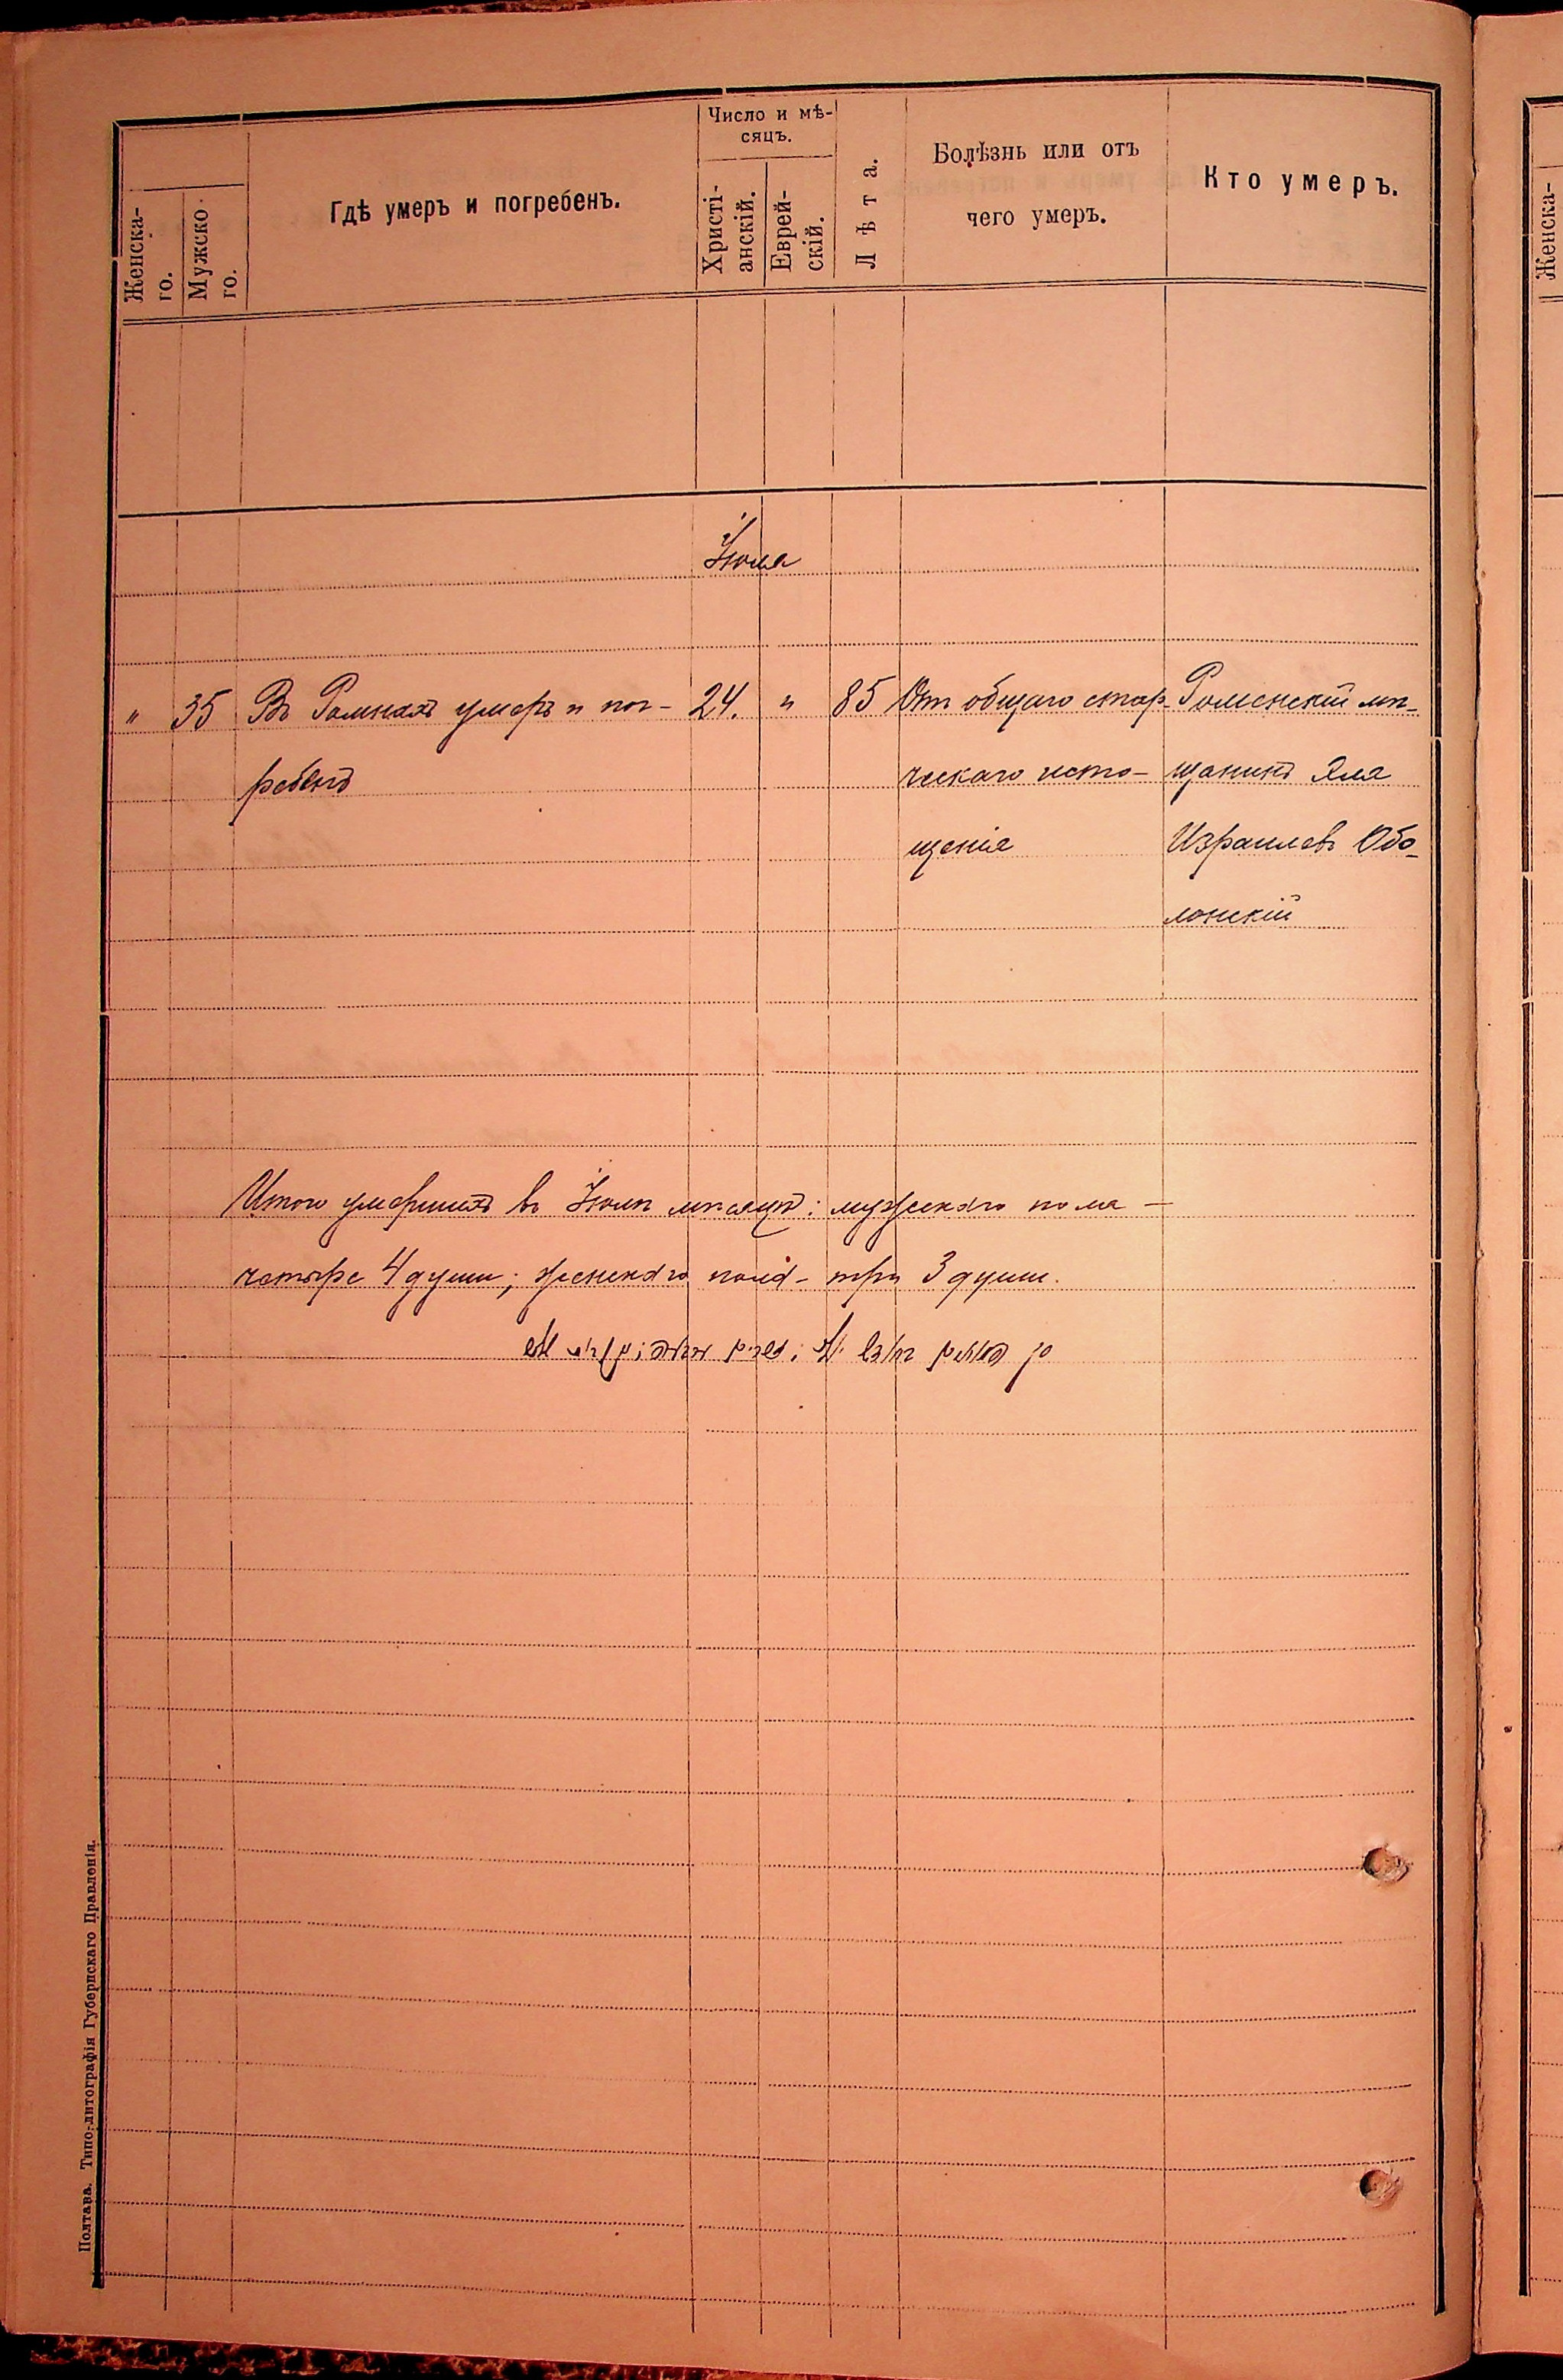 Женска-
го.
Мужско-
го.
Гдѣ умеръ и погребенъ.
Число и мѣ-
сяцъ.
Христі-
анскій.
Еврей-
скій.
Лѣта.
Болѣзнь или отъ
чего умеръ.
Кто умеръ.
Іюля
" 35 Въ Ромнахъ умеръ и пог- 24. " 85 Отъ общаго стар- Роменскій мѣ-
ребенъ ческаго исто- щанинъ Эля
щенія Израилевъ Обо-
лонскій
Итого умершихъ въ Іюлѣ мѣсяцѣ: мужскаго пола —
четыре 4 души; женскаго пола - три 3 души.
Полтава. Типо-литографія Губернскаго Правленія.
Женска-